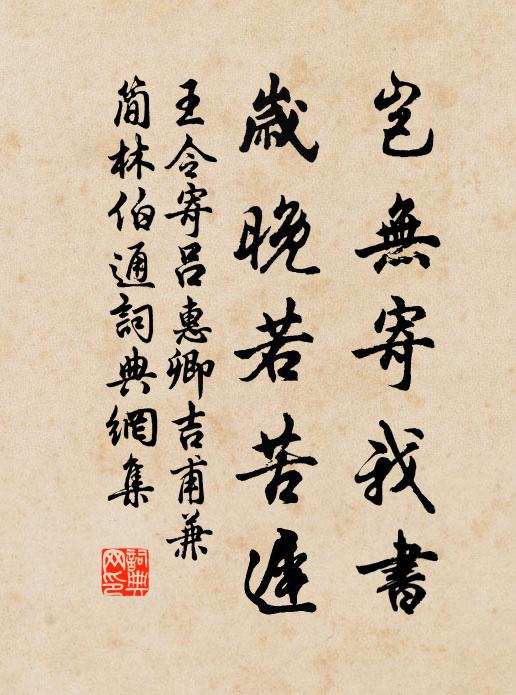 豈無寄我書
歲晚若苦遲
王令寄呂惠卿吉甫兼
簡林伯通詞典網集
詞典
网印